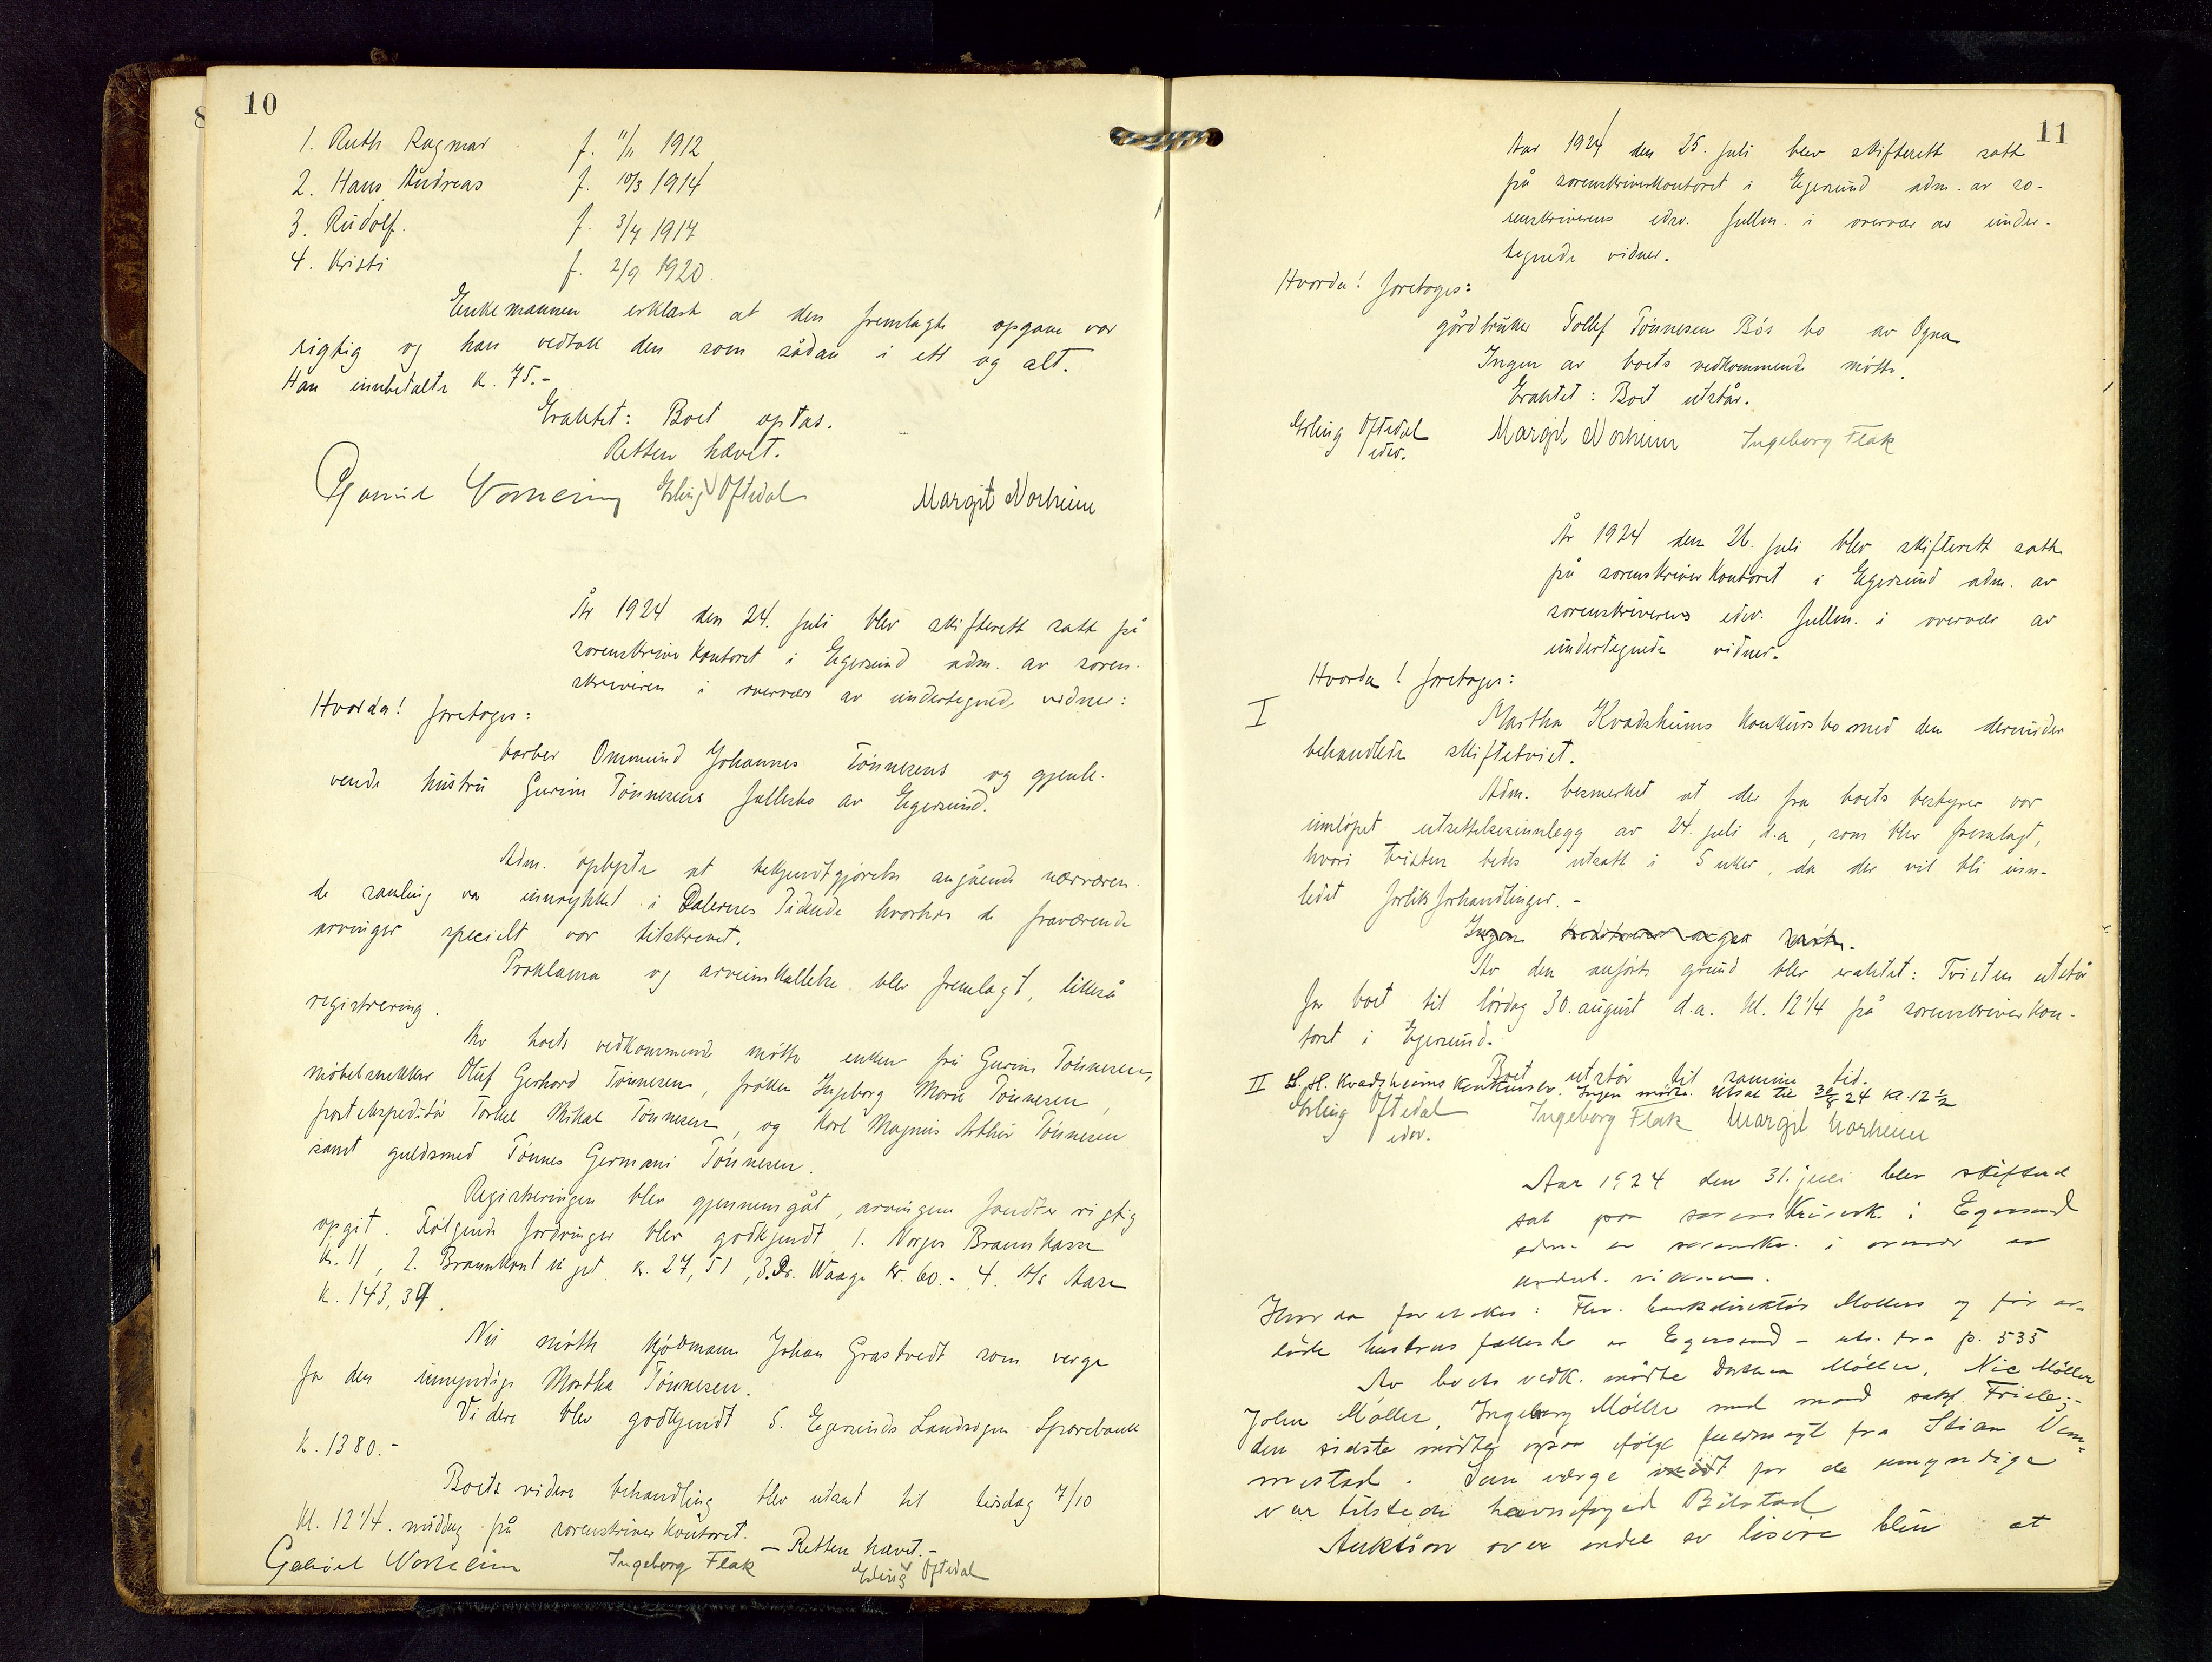 10
1. Ruth Ragmar f. 11/11 1912
2. Hans Andreas f. 10/3 1914
3. Rudolf. f. 3/7 1917
4. Kristi f. 2/9 1920.
Enkemannen erklærte at den fremlagte opgave var
rigtig og han vedtok den som sådan i ett og alt.
Han innbetalte kr. 75.-
Eraktet: Boet optas.
Retten hævet.
Erling Oftedal Margit Norheim
År 1924 den 24. juli blev skifterett satt på
sorenskriverkontoret i Egersund adm. av soren-
skriveren i overvær av undertegnede vidner:
Hvorda! foretoges:
barber Ommund Johannes Tönnesens og gjenle-
vende hustru Gurine Tönnesens fællesbo av Egersund.
Adm. oplyste at bekjendtgjörelse angående nærværen-
de samling var innrykket i Dalernes Tidende hvorhos de fraværende
arvinger specielt var tilskrevet.
Proklama og arveinnkallelse blev fremlagt, likeså
registrering.
Av boets vedkommende mötte enken fru Gurine Tönnesen,
möbelsnekker Oluf Gerhard Tönnesen, fröken Ingeborg Marie Tönnesen,
postekspeditör Torkel Mikal Tönnesen, og Karl Magnus Arthur Tönnesen
samt guldsmed Tönnes Germani Tönnesen.
Registreringen blev gjennemgåt, arvingene fandt den rigtig
opgit. Fölgende fordringer blev godkjendt 1. Norges Brannkasse
kr. 11, 2. kr. 27,51, 3. Dr. Waage kr. 60.- 4. A/S Aase
kr. 143,34.
Nu mötte kjöbmann Johan Grastvedt som verge
for den umyndige Martha Tönnesen.
Videre blev godkjendt 5. Egersunds Landsogns Sparebank
kr. 1380.-
Boets videre behandling blev utsat til tirsdag 7/10
kl. 12 1/4 middag på sorenskriverkontoret. — Retten hævet.-
Gabriel Ingeborg Flak Erling Oftedal
11
Aar 1924 den 25. juli blev skifterett satt
på sorenskriverkontoret i Egersund adm. av so-
renskriverens edsv. fullm. i overvær av under-
tegnede vidner.
Hvorda! foretoges:
gårdbruker Tollef Tönnesen Bös bo av Ogna
Ingen av boets vedkommende mötte.
Eraktet: Boet utstår.
Erling Oftedal Margit Norheim Ingeborg Flak
edsv.
År 1924 den 26. juli blev skifterett satt
på sorenskriverkontoret i Egersund adm. av
sorenskriverens edsv. fullm. i overvær av
undertegnede vidner.
Hvorda! foretoges:
I Martha Kvadsheims konkursbo med den derunder
behandlede skiftetvist.
Adm. bemerket at der fra boets bestyrer var
innlöpet utsettelsesinnlegg av 24. juli d.a, som blev fremlagt,
hvori tvisten bedes utsatt i 5 uker, da der vil bli inn-
ledet forliksforhandlinger. -
Ingen mötte.
Av den anförte grund blev eraktet: Tvisten utstår
for boet til lördag 30. august d.a. kl. 12 1/4 på sorenskriverkon-
toret i Egersund.
Boet utstår til samme tid.
II L. H. Kvadsheims konkursbo. Ingen mötte. Utsat til 30/8 24 kl. 12 1/2
Erling Oftedal Ingeborg Flak Margit Norheim
edsv.
Aar 1924 den 31. juli blev skifteret
sat paa sorenskriverk. i Egersund
adm. av sorenskr. i overvær av
undert. vidner.
Hvorda foretokes: Fhv. bankdirektör Möllers og för av-
döde hustrus fællesbo av Egersund - uts. fra p. 535
Av boets vedk. mödte Dorthea Möller, Nic Möller
John Möller, Ingeborg Möller med mand Friele;-
den sidste mödte ogsaa ifölge fuldmagt fra Stian Vem-
mestad. Som værge mödt for de umyndige
var tilstede havnefoged Bilstad
Auktion over endel av lösöre blev at